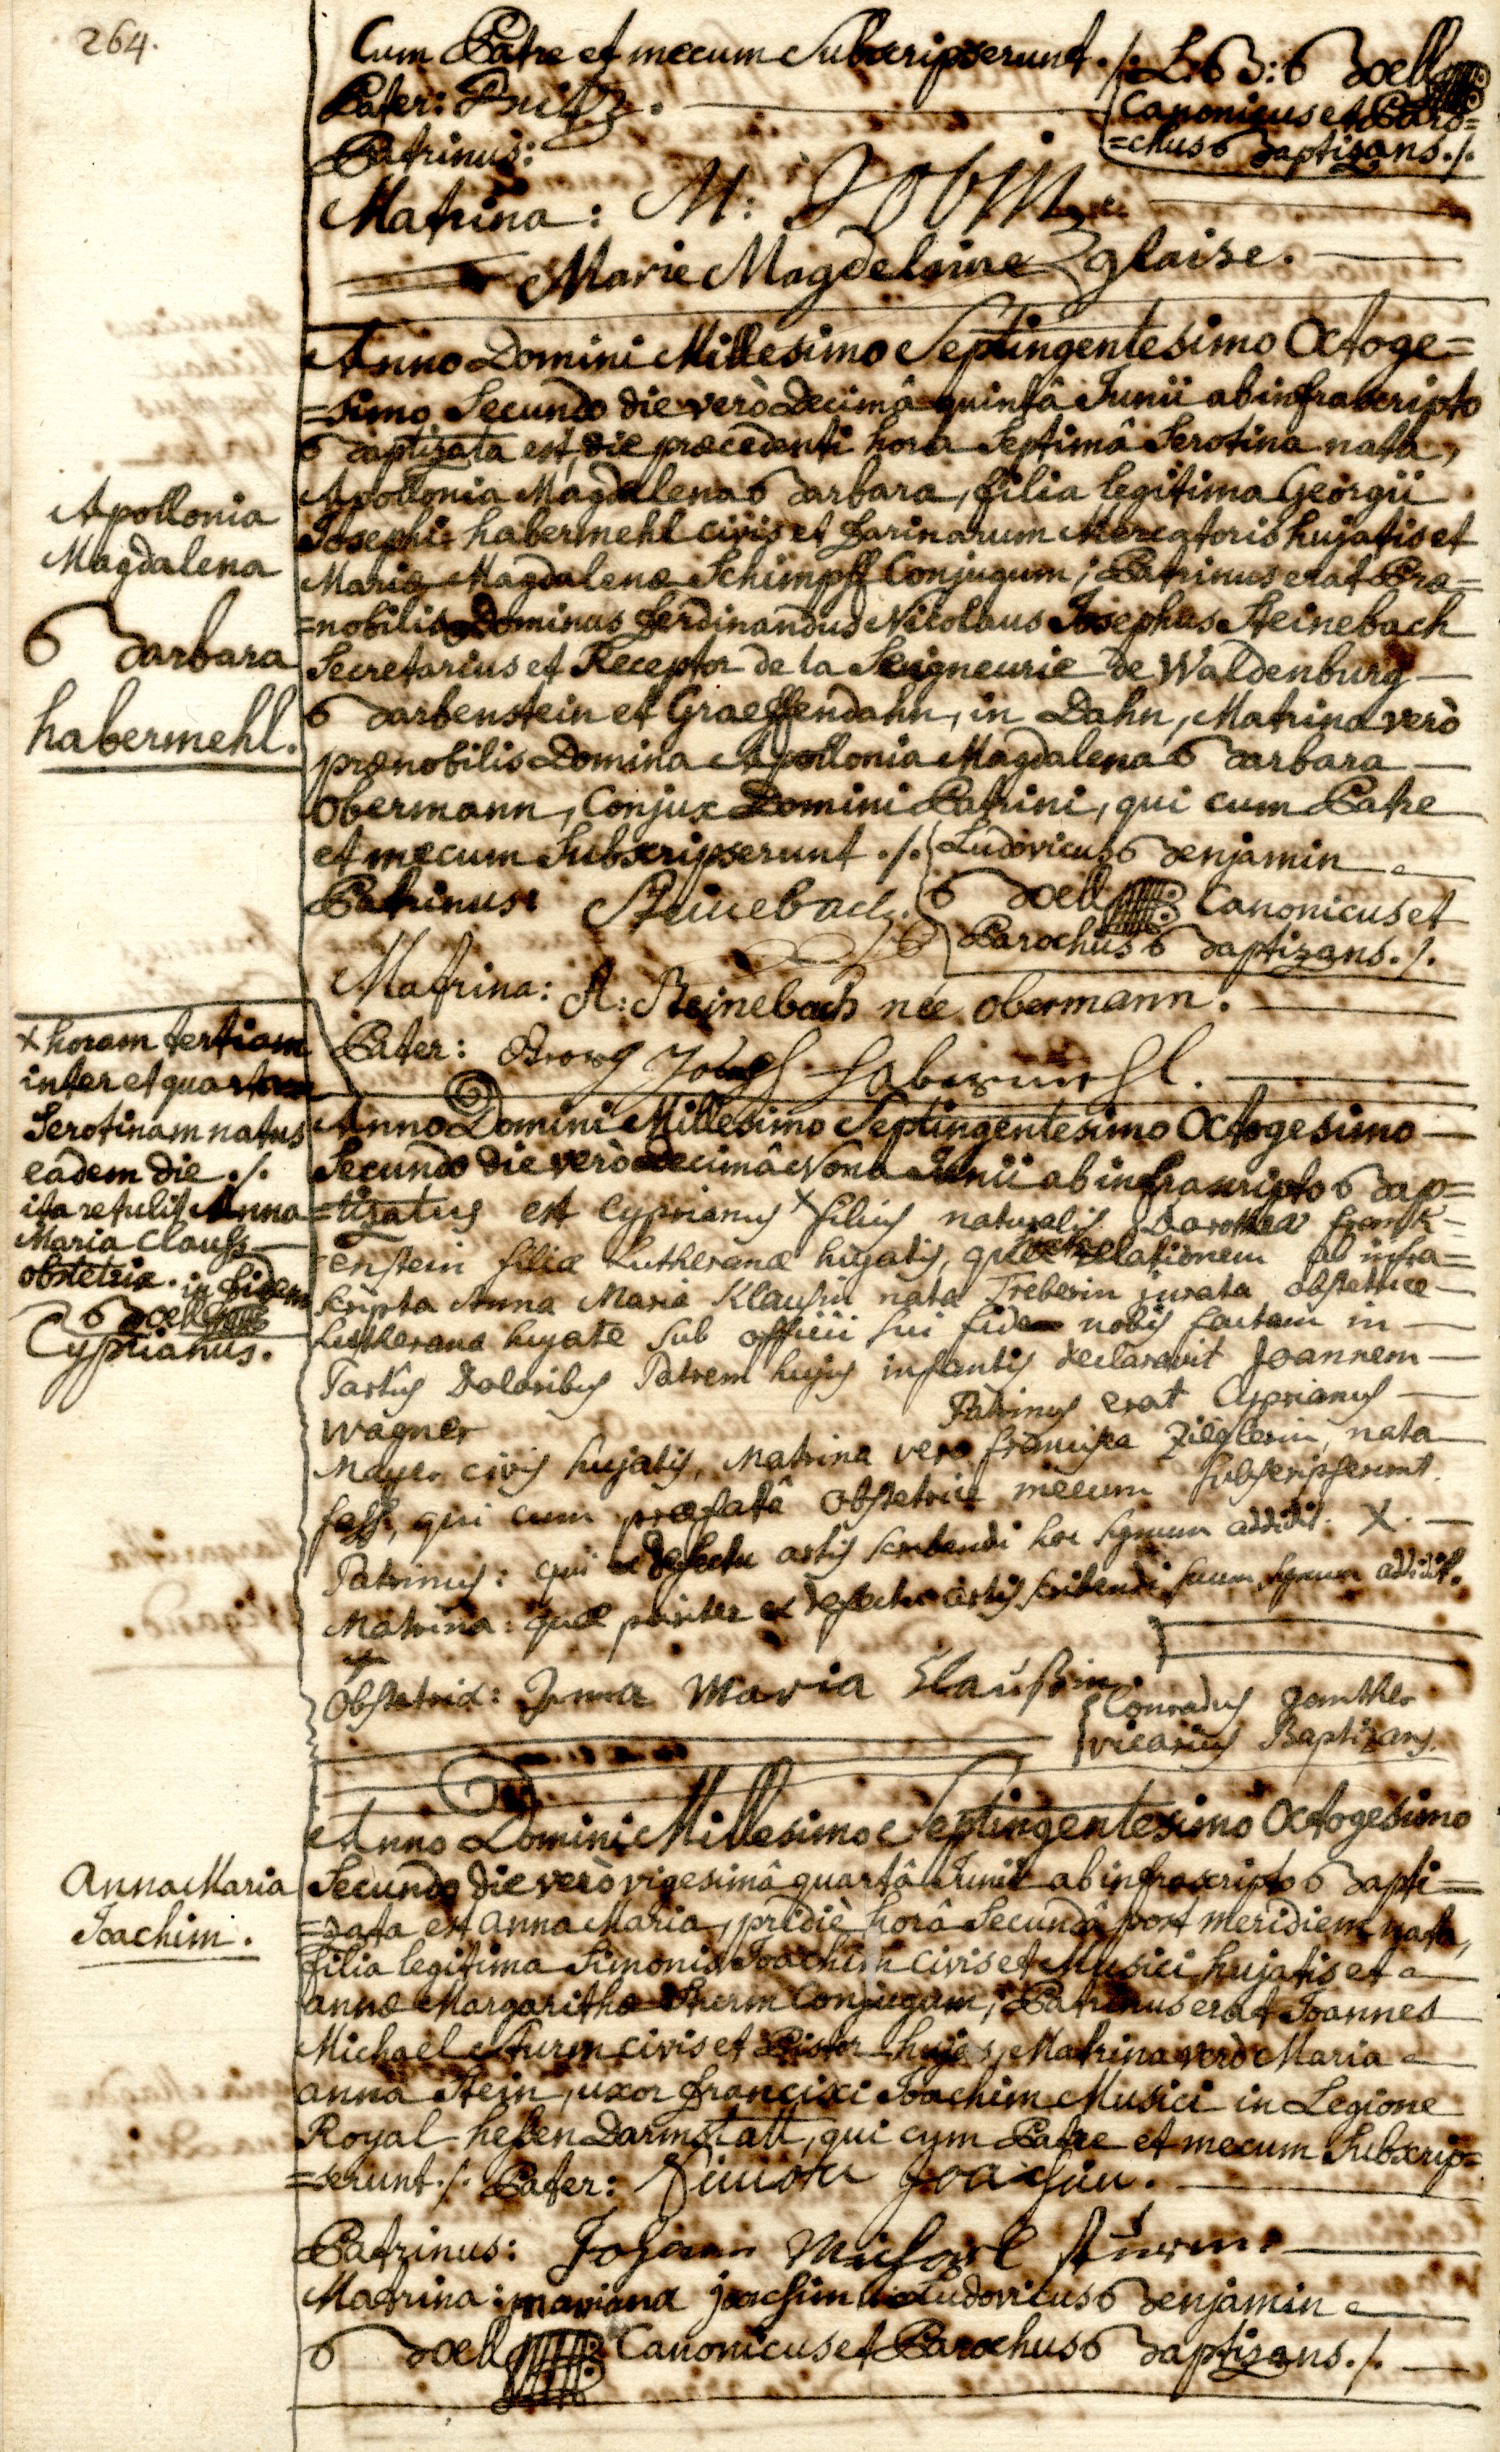 264.
Cum Patre et mecum Subscripserunt ./. L: B: Boell
Canonicus et Paro=
=chus Baptizans ./.
Pater: Fritz.
Patrinus:
Matrina: M: Jobin
Marie Magdeleine Eglaise.
Anno Domini Millesimo Septingentesimo Octoge=
=simo Secundo die verò Decimâ quintâ Junii ab infrascripto
Baptizata est, die præcedenti hora Septimâ Serotina nata,
Apollonia Magdalena Barbara, filia legitima Georgii
Josephi habermehl civis et farinarum Mercatoris hujatis et
Mariæ Magdalenæ Schimpff Conjugum; Patrinus erat Præ=
=nobilis Dominus Ferdinandus Nicolaus Josephus Steinebach
Secretarius et Receptor de la Seigneurie de Waldenburg
Barbenstein et Graeffendahn, in Dahn, Matrina verò
prænobilis Domina Apollonia Magdalena Barbara
Obermann, Conjux Domini Patrini, qui cum Patre
et mecum Subscripserunt ./. Ludovicus Benjamin
Boell Canonicus et
Parochus Baptizans ./.
Patrinus: Steinebach.
Matrina: A: Steinebach née Obermann.
Pater: Georg Joseph Habermehl.
Apollonia
Magdalena
Barbara
habermehl.
Anno Domini Millesimo Septingentesimo Octogesimo
Secundo die verò decimâ Nonâ Junii ab infrascripto Bap=
=tizatus est Cyprianus x filius naturalis Dorotheæ Frank-
enstein filiæ Lutheranæ hujatis, quæ relationem ab infra=
scripta Anna Maria Klausin nata Treberin jurata obstetrice
Lutherana hujate sub officii sui fide nobis factam in
Partûs Doloribus Patrem hujus infantis declaravit Joannem
Wagner Patrinus erat Cyprianus
Mayer civis hujatis, Matrina vero Francisca Zieglerin, nata
fass, qui cum præfatâ Obstetrice mecum subscripserunt.
Patrinus: qui ex defectu artis scribendi hoc signum addidit. X.
Matrina: quæ pariter ex defectu artis scribendi suum signum addidit.
+
Obstetrix: Anna Maria Claußin
Conradus Genther
vicarius Baptizans.
x horam tertiam
inter et quartam
Serotinam natus
eâdem die ./.
ita retulit Anna
Maria Clauss
obstetrix. in fidem
Boell
Cyprianus.
Anno Domini Millesimo Septingentesimo Octogesimo
Secundo die verò vigesimâ quartâ Junii ab infrascripto Bapti=
=zata est anna Maria, pridiè horâ Secundâ post meridiem nata,
filia legitima Simonis Joachim civis et Musici hujatis et
annæ Margarithæ Sturm Conjugum; Patrinus erat Joannes
Michael Sturm civis et Pistor hujas, Matrina verò Maria
anna Stein, uxor francisci Joachim Musici in Legione
Royal hessen Darmstatt, qui cum Patre et mecum Subscrip=
=serunt ./. Pater: Simon Joachim.
Patrinus: Johann Michael Sturm.
Matrina: mariana joachim Ludovicus Benjamin
Boell Canonicus et Parochus Baptizans ./.
Anna Maria
Joachim.